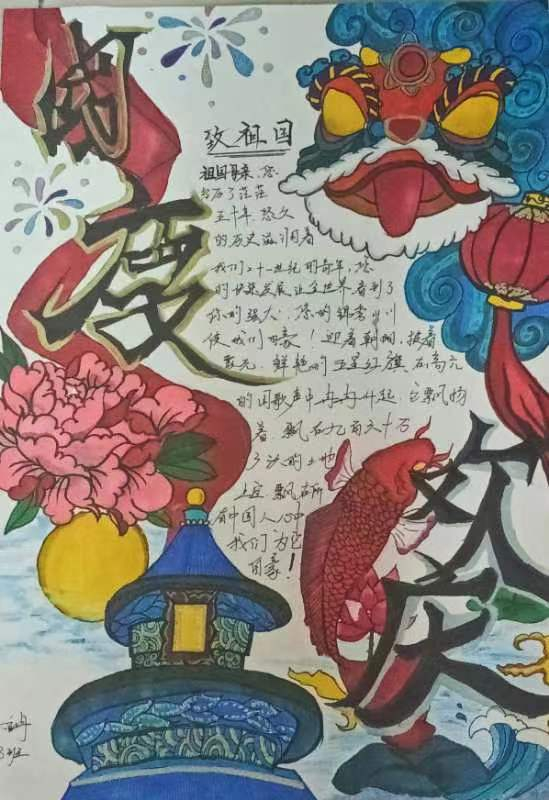 国度
致祖国
祖国母亲,您
了茫茫
五千年.悠久
的历史滋润着
我们二十一世纪的青年,您
的快速发展让全世界看到了
你的强大.您的锦秀山川
使我们自豪!迎着朝阳,披着
霞光.鲜艳的五星红旗在高亢
的国歌声中冉冉升起.它飘扬
着.飘在九百六十万
的土地
上空.飘在所
有中国人心中
我们为它
自豪!
欢庆
班